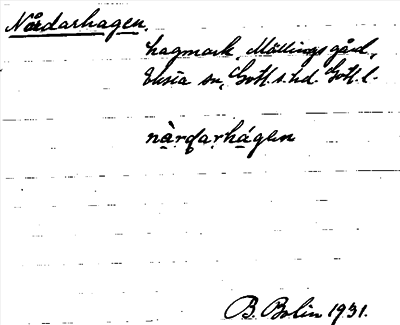 Nårdarhagen.
hagmark, Möllings gård,
Eksta sn, Gotl. s. hd. Gotl. l.
nàrdarhágen
B. Bolin 1931.